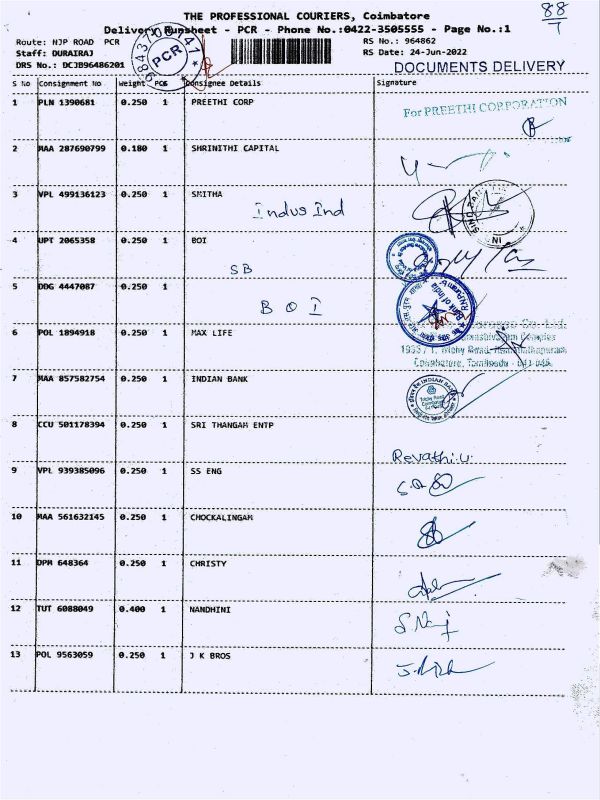 88
T
THE PROFESSIONAL COURIERS, Coimbatore
Delivery Runsheet - PCR - Phone No.:0422-3505555 - Page No.:1
Route: NJP ROAD PCR
RS No.: 964862
Staff: DURAIRAJ
RS Date: 24-Jun-2022
DRS No.: DCJB96486201
PCR
DOCUMENTS DELIVERY
S No Consignment No Weight PCS Consignee Details Signature
1 PLN 1390681 0.250 1 PREETHI CORP
For PREETHI CORPORATION
2 MAA 287690799 0.180 1 SHRINITHI CAPITAL
3 VPL 499136123 0.250 1 SMITHA
Indus Ind
4 UPT 2065358 0.250 1 BOI
SB
5 DDG 4447087 0.250 1
BOI
Bank of India
6 POL 1894918 0.250 1 MAX LIFE
Co. Ltd.
Complex
Trichy Road, Ramanathapuram
Coimbatore, Tamilnadu - 641 045.
7 MAA 857582754 0.250 1 INDIAN BANK
INDIAN BANK
Trichy Road
Coimbatore
8 CCU 501178394 0.250 1 SRI THANGAM ENTP
Revathi.U.
9 VPL 939385096 0.250 1 SS ENG
10 MAA 561632145 0.250 1 CHOCKALINGAM
11 DPM 648364 0.250 1 CHRISTY
12 TUT 6088049 0.400 1 NANDHINI
13 POL 9563059 0.250 1 J K BROS